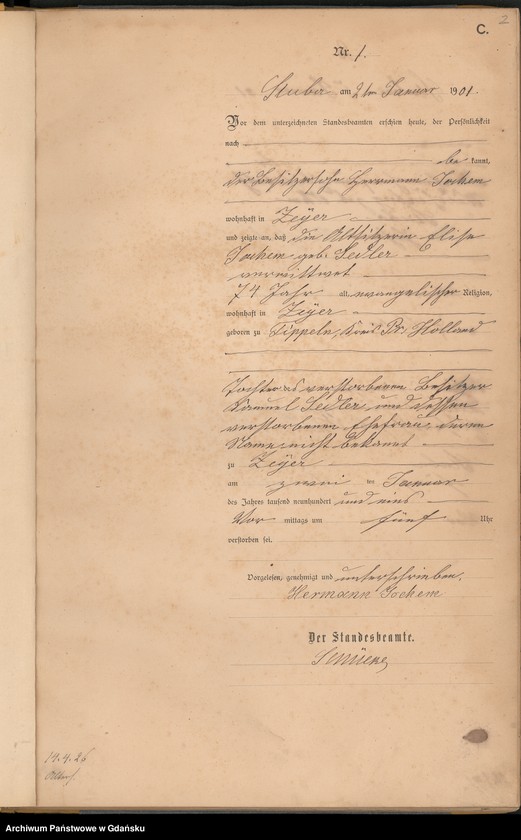 2
C.
Nr. 1.
Stuba am 2ten Januar 1901.
Vor dem unterzeichneten Standesbeamten erschien heute, der Persönlichkeit
nach
be kannt,
der Besitzersohn Herrmann Jochem
wohnhaft in Zeyer
und zeigte an, daß die Altsitzerin Elise
Jochem geb. Sedler
verwittwet
74 Jahr alt, evangelischer Religion,
wohnhaft in Zeyer
geboren zu Tippeln, Kreis Pr. Holland
Tochter des verstorbenen Besitzer
Samuel Sedler, und dessen
verstorbenen Ehefrau, deren
Name nicht bekannt
zu Zeyer
am zwei ten Januar
des Jahres tausend neunhundert und eins
Vor mittags um fünf Uhr
verstorben sei.
Vorgelesen, genehmigt und unterschrieben.
Hermann Jochem
Der Standesbeamte.
14.4.26
Archiwum Państwowe w Gdańsku